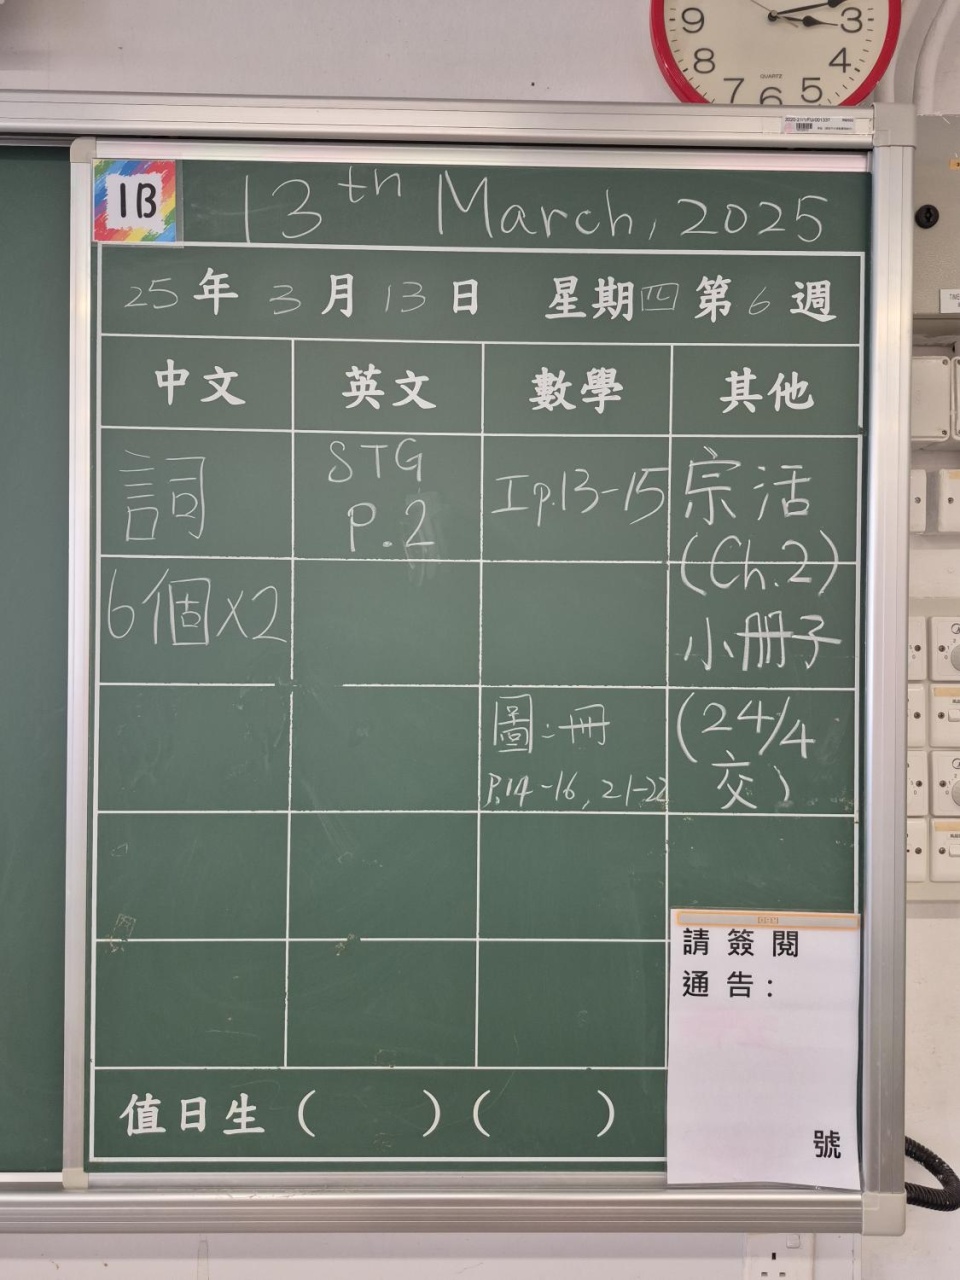 9
3
8
4
7
6
5
QUARTZ
1B
13th March, 2025
25年 3月 13日 星期四 第6週
中文 英文 數學 其他
詞
6個x2
STG
P.2
I p.13-15
圖:冊
P.14-16, 21-22
宗活
(Ch.2)
小冊子
(24/4
交)
請簽閱
通告:
號
值日生 ( ) ( )